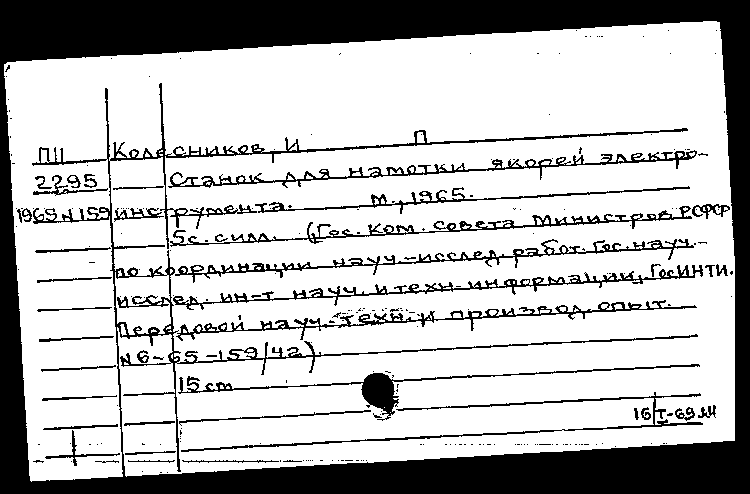 ПII Колесников, И П
2295 Станок для намотки якорей электро-
1969 N 159 инструмента. М., 1965.
5с. с илл. (Гос. ком. совета Министров РСФСР
по координации науч.-исслед. работ. Гос. науч.-
исслед. ин-т науч. и техн. информации, ГосИНТИ.
Передовой науч.-техн. и производ. опыт.
N 6-65-159/42).
15 cm
16/I-69